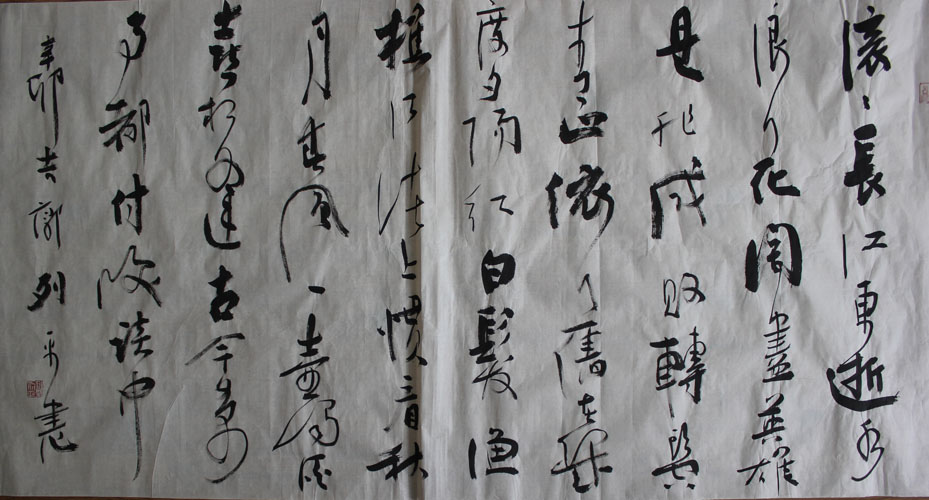 滚〻長江東逝水
浪花盡英雄
是非成敗轉
青山依〻舊在幾
度夕陽紅白髮漁
樵江渚上慣看秋
月春風一壺濁酒
喜相逢古今多少
事都付笑談中
辛卯吉 郭列平書